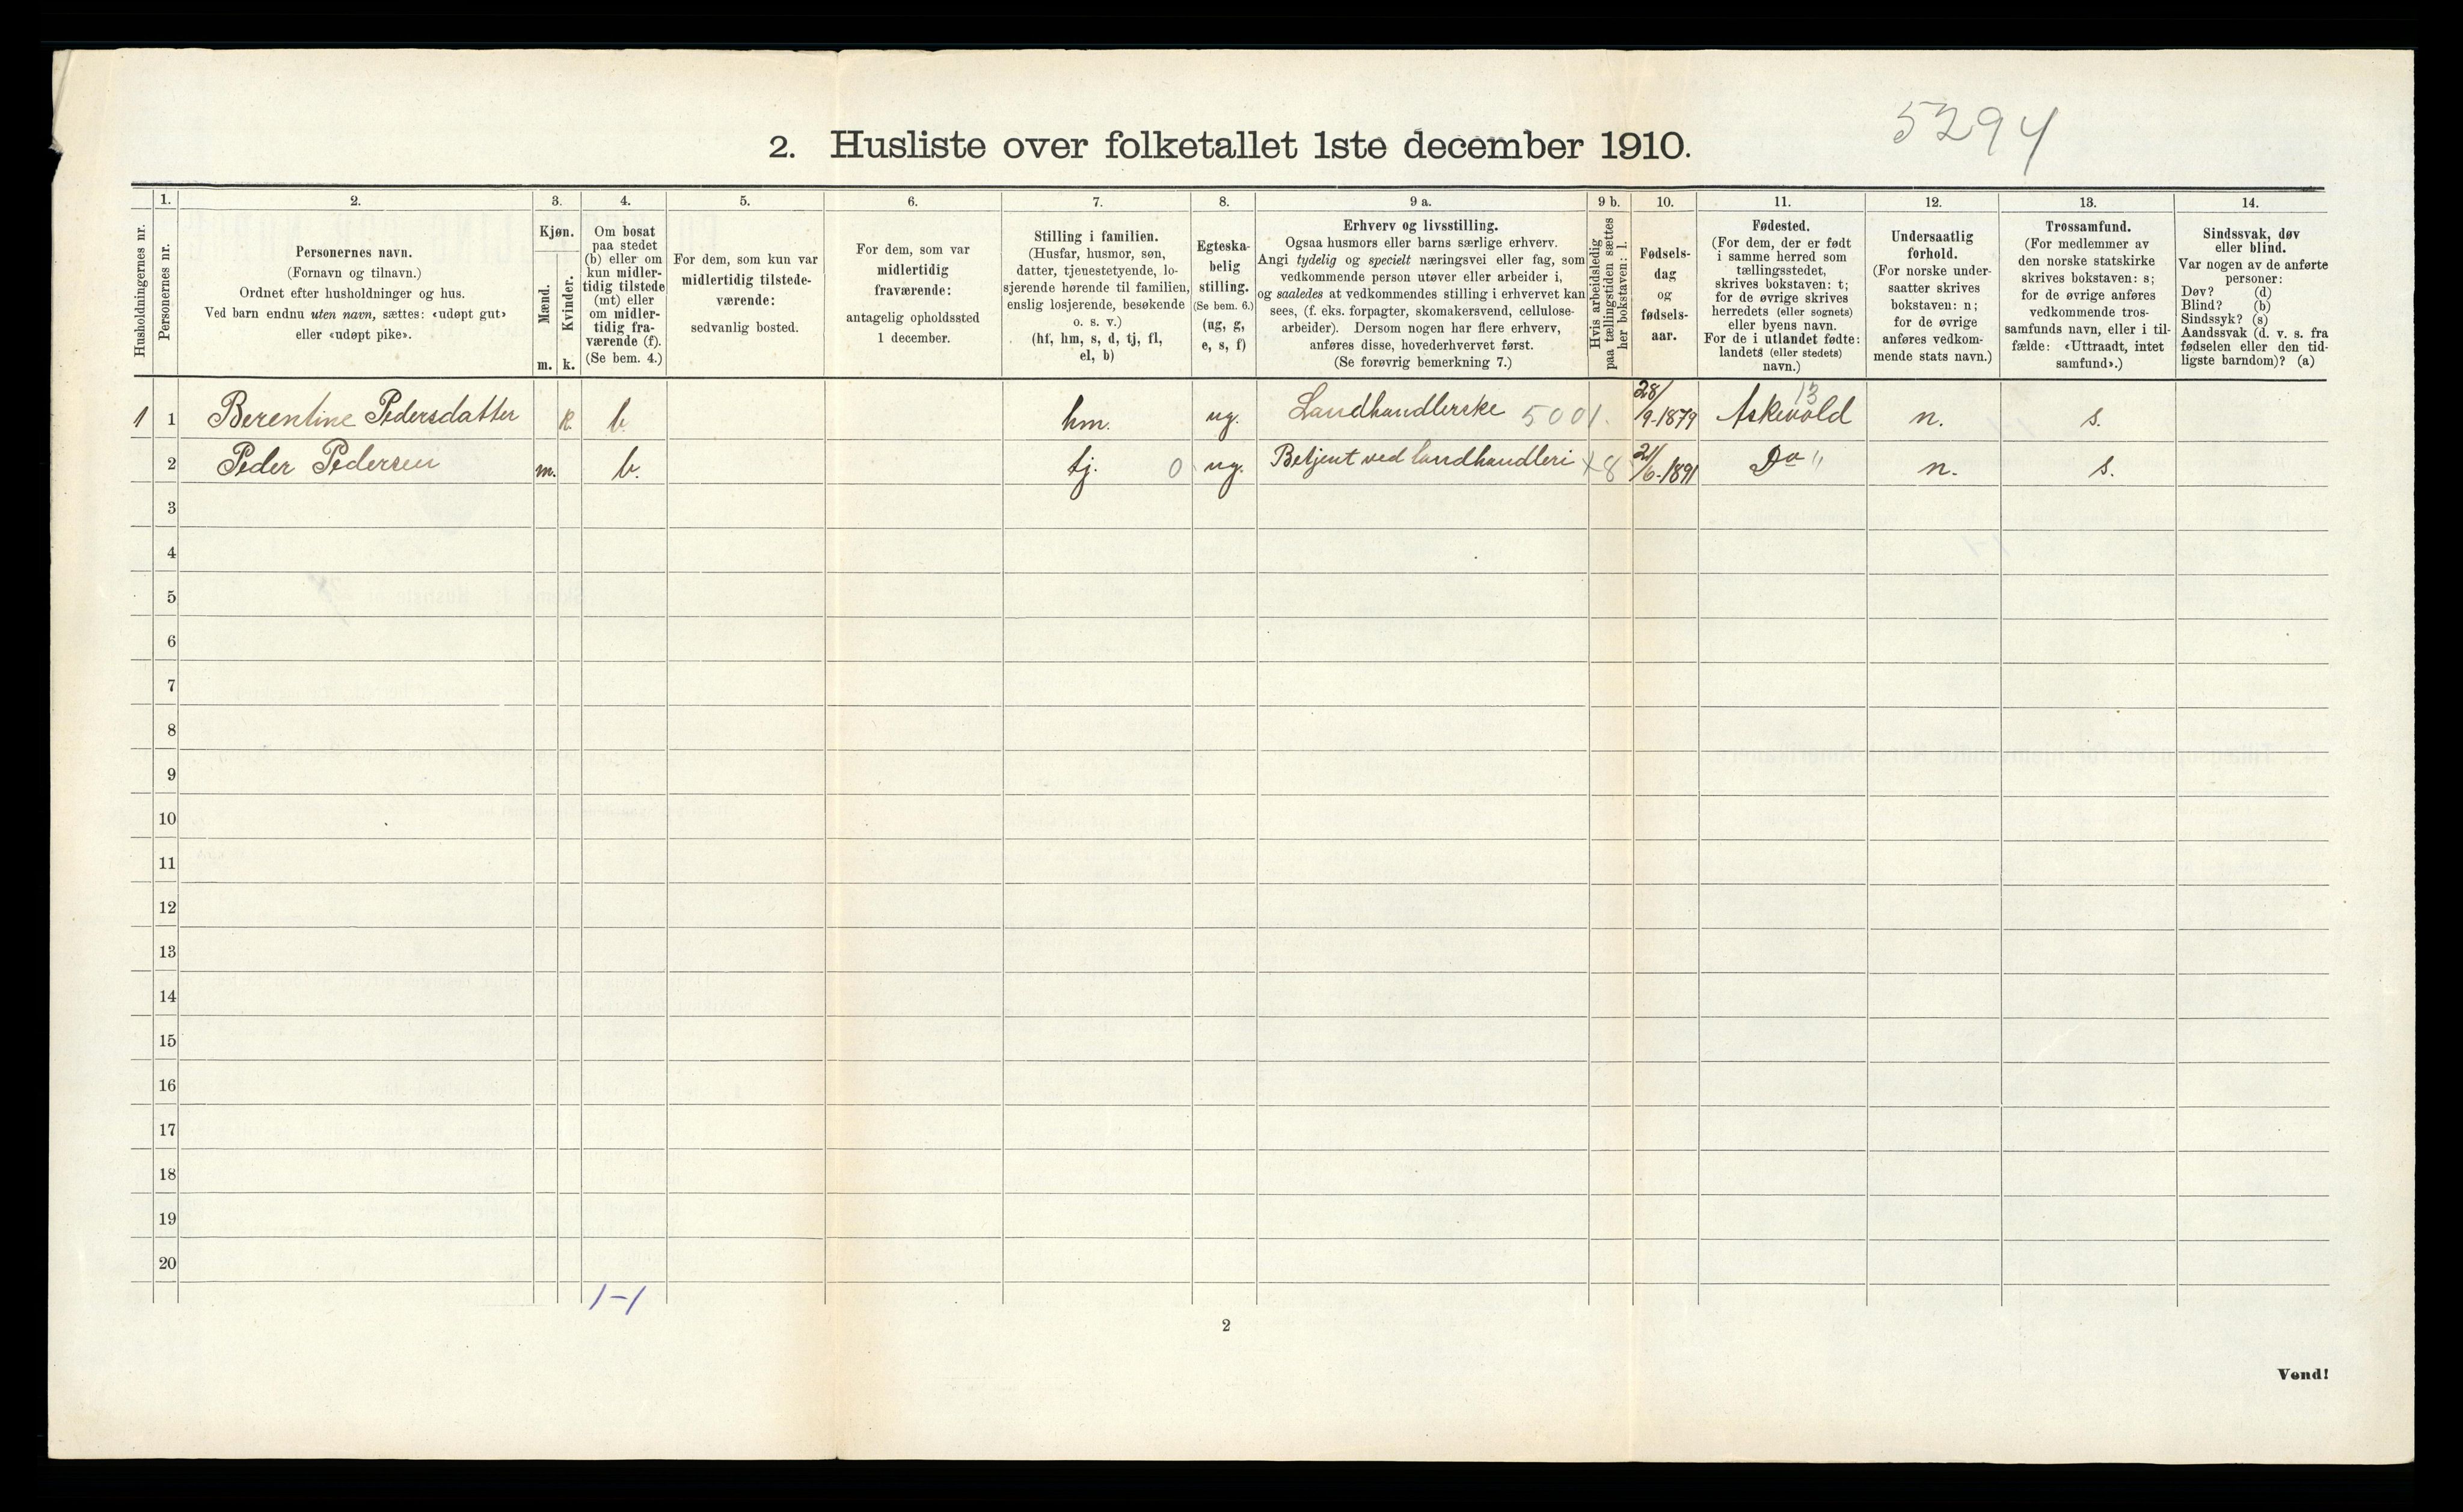 5294
2. Husliste over folketallet 1ste december 1910.
1. 2. 3. 4. 5. 6. 7. 8. 9 a. 9 b. 10. 11. 12. 13. 14.
Husholdningernes nr.
Personernes nr.
Personernes navn.
(Fornavn og tilnavn.)
Ordnet efter husholdninger og hus.
Ved barn endnu uten navn, sættes: «udøpt gut»
eller «udøpt pike».
Kjøn.
Mænd.
Kvinder.
m. k.
Om bosat
paa stedet
(b) eller om
kun midler-
tidig tilstede
(mt) eller
om midler-
tidig fra-
værende (f).
(Se bem. 4.)
For dem, som kun var
midlertidig tilstede-
værende:
sedvanlig bosted.
For dem, som var
midlertidig
fraværende:
antagelig opholdssted
1 december.
Stilling i familien.
(Husfar, husmor, søn,
datter, tjenestetyende, lo-
sjerende hørende til familien,
enslig losjerende, besøkende
o. s. v.)
(hf, hm, s, d, tj, fl,
el, b)
Egteska-
belig
stilling.
(Se bem. 6.)
(ug, g,
e, s, f)
Erhverv og livsstilling.
Ogsaa husmors eller barns særlige erhverv.
Angi tydelig og specielt næringsvei eller fag, som
vedkommende person utøver eller arbeider i,
og saaledes at vedkommendes stilling i erhvervet kan
sees, (f. eks. forpagter, skomakersvend, cellulose-
arbeider). Dersom nogen har flere erhverv,
anføres disse, hovederhvervet først.
(Se forøvrig bemerkning 7.)
Hvis arbeidsledig
paa tællingstiden sættes
her bokstaven: l.
Fødsels-
dag
og
fødsels-
aar.
Fødested.
(For dem, der er født
i samme herred som
tællingsstedet,
skrives bokstaven: t;
for de øvrige skrives
herredets (eller sognets)
eller byens navn.
For de i utlandet fødte:
landets (eller stedets)
navn.)
Undersaatlig
forhold.
(For norske under-
saatter skrives
bokstaven: n;
for de øvrige
anføres vedkom-
mende stats navn.)
Trossamfund.
(For medlemmer av
den norske statskirke
skrives bokstaven: s;
for de øvrige anføres
vedkommende tros-
samfunds navn, eller i til-
fælde: «Uttraadt, intet
samfund».)
Sindssvak, døv
eller blind.
Var nogen av de anførte
personer:
Døv? (d)
Blind? (b)
Sindssyk? (s)
Aandssvak (d. v. s. fra
fødselen eller den tid-
ligste barndom)? (a)
1 1 Berentine Pedersdatter k. b. hm. ug. Landhandlerske 5001. 28/9-1879 13 Askevold n. s.
2 Peder Pedersen m. b. tj. 0 ug. Betjent ved landhandleri +8 21/6-1891 Do " n. s.
3
4
5
6
7
8
9
10
11
12
13
14
15
16
17
18
19
20
1-1
2
Vend!